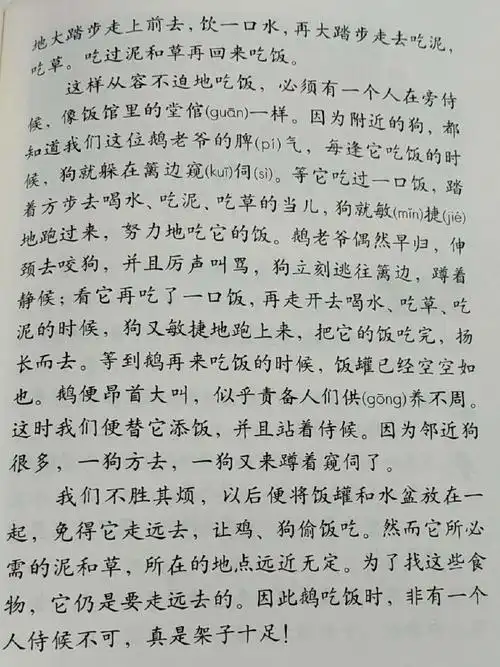 地大踏步走上前去，饮一口水，再大踏步走去吃泥，
吃草。吃过泥和草再回来吃饭。
这样从容不迫地吃饭，必须有一个人在旁侍
候，像饭馆里的堂倌(guān)一样。因为附近的狗，都
知道我们这位鹅老爷的脾(pí)气，每逢它吃饭的时
候，狗就躲在篱边窥(kuī)伺(sì)。等它吃过一口饭，踏
着方步去喝水、吃泥、吃草的当儿，狗就敏(mǐn)捷(jié)
地跑过来，努力地吃它的饭。鹅老爷偶然早归，伸
颈去咬狗，并且厉声叫骂，狗立刻逃往篱边，蹲着
静候；看它再吃了一口饭，再走开去喝水、吃草、吃
泥的时候，狗又敏捷地跑上来，把它的饭吃完，扬
长而去。等到鹅再来吃饭的时候，饭罐已经空空如
也。鹅便昂首大叫，似乎责备人们供(gōng)养不周。
这时我们便替它添饭，并且站着侍候。因为邻近狗
很多，一狗方去，一狗又来蹲着窥伺了。
我们不胜其烦，以后便将饭罐和水盆放在一
起，免得它走远去，让鸡、狗偷饭吃。然而它所必
需的泥和草，所在的地点远近无定。为了找这些食
物，它仍是要走远去的。因此鹅吃饭时，非有一个
人侍候不可，真是架子十足！